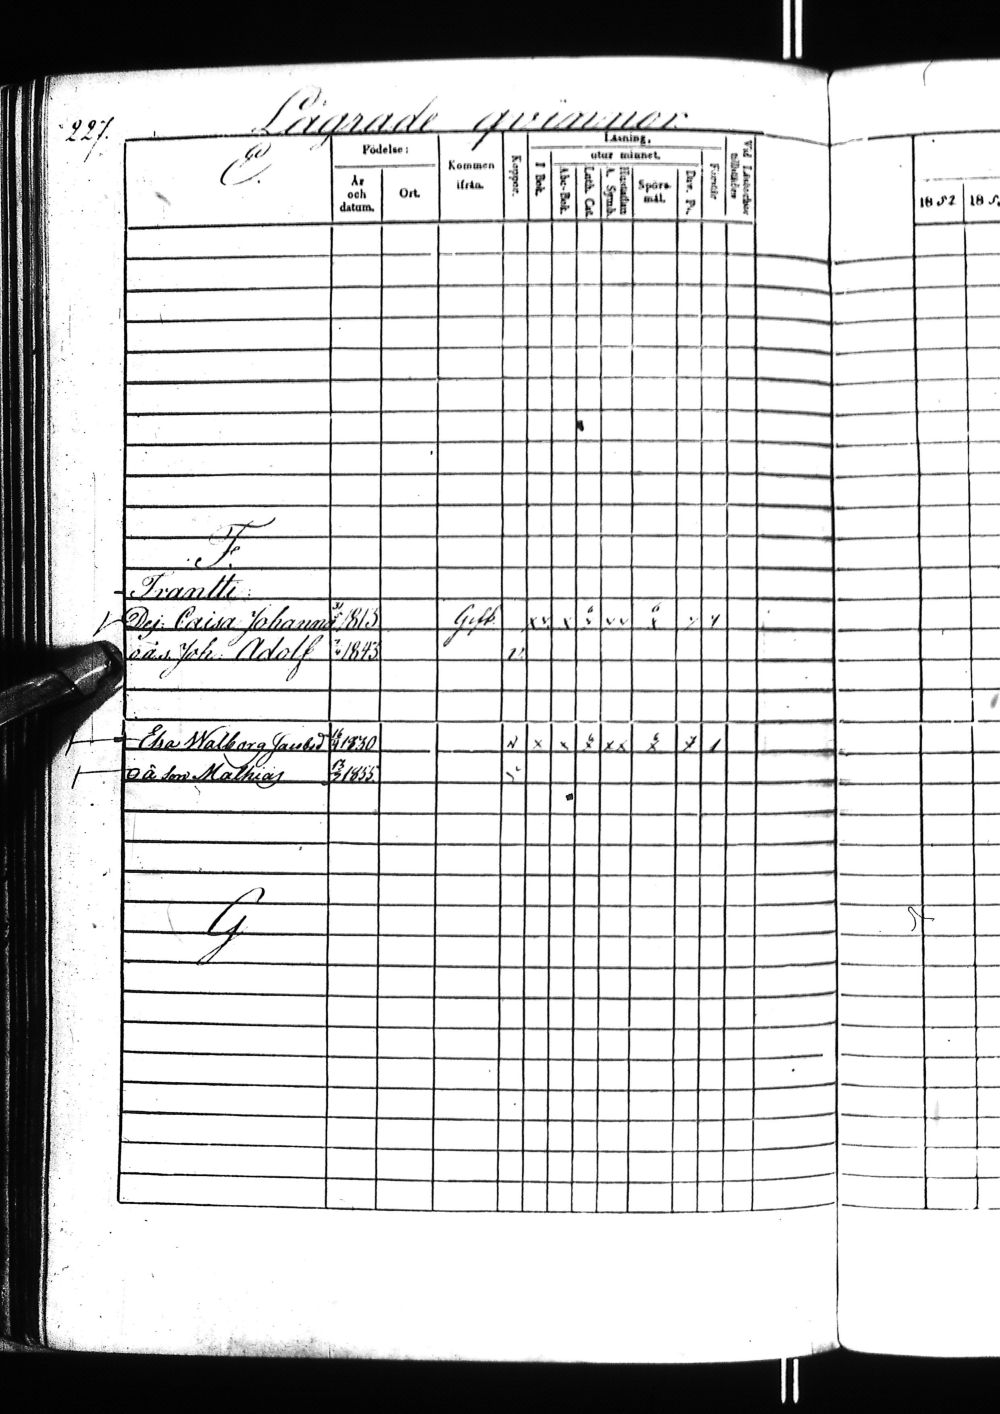 227.
Lägrade qvinnor.
E.
Födelse:
År och datum.
Ort.
Kommen ifrån.
Koppor.
Läsning.
I Bok.
utur minnet.
Abc-Bok.
Luth. Cat.
Hustaflan A. Symb.
Spörsmål.
Dav. Ps.
Förstår
Vid Läseförhör tillstädes
1852 185
F.
Trantti.
Dej. Caisa Johanna 1813 Gift. x v x v v x
oä s. Joh. Adolf 1843 v
Elsa Walborg Jacobsd 1830 x x x x 1
oä son Mathias 13/2 1855
G